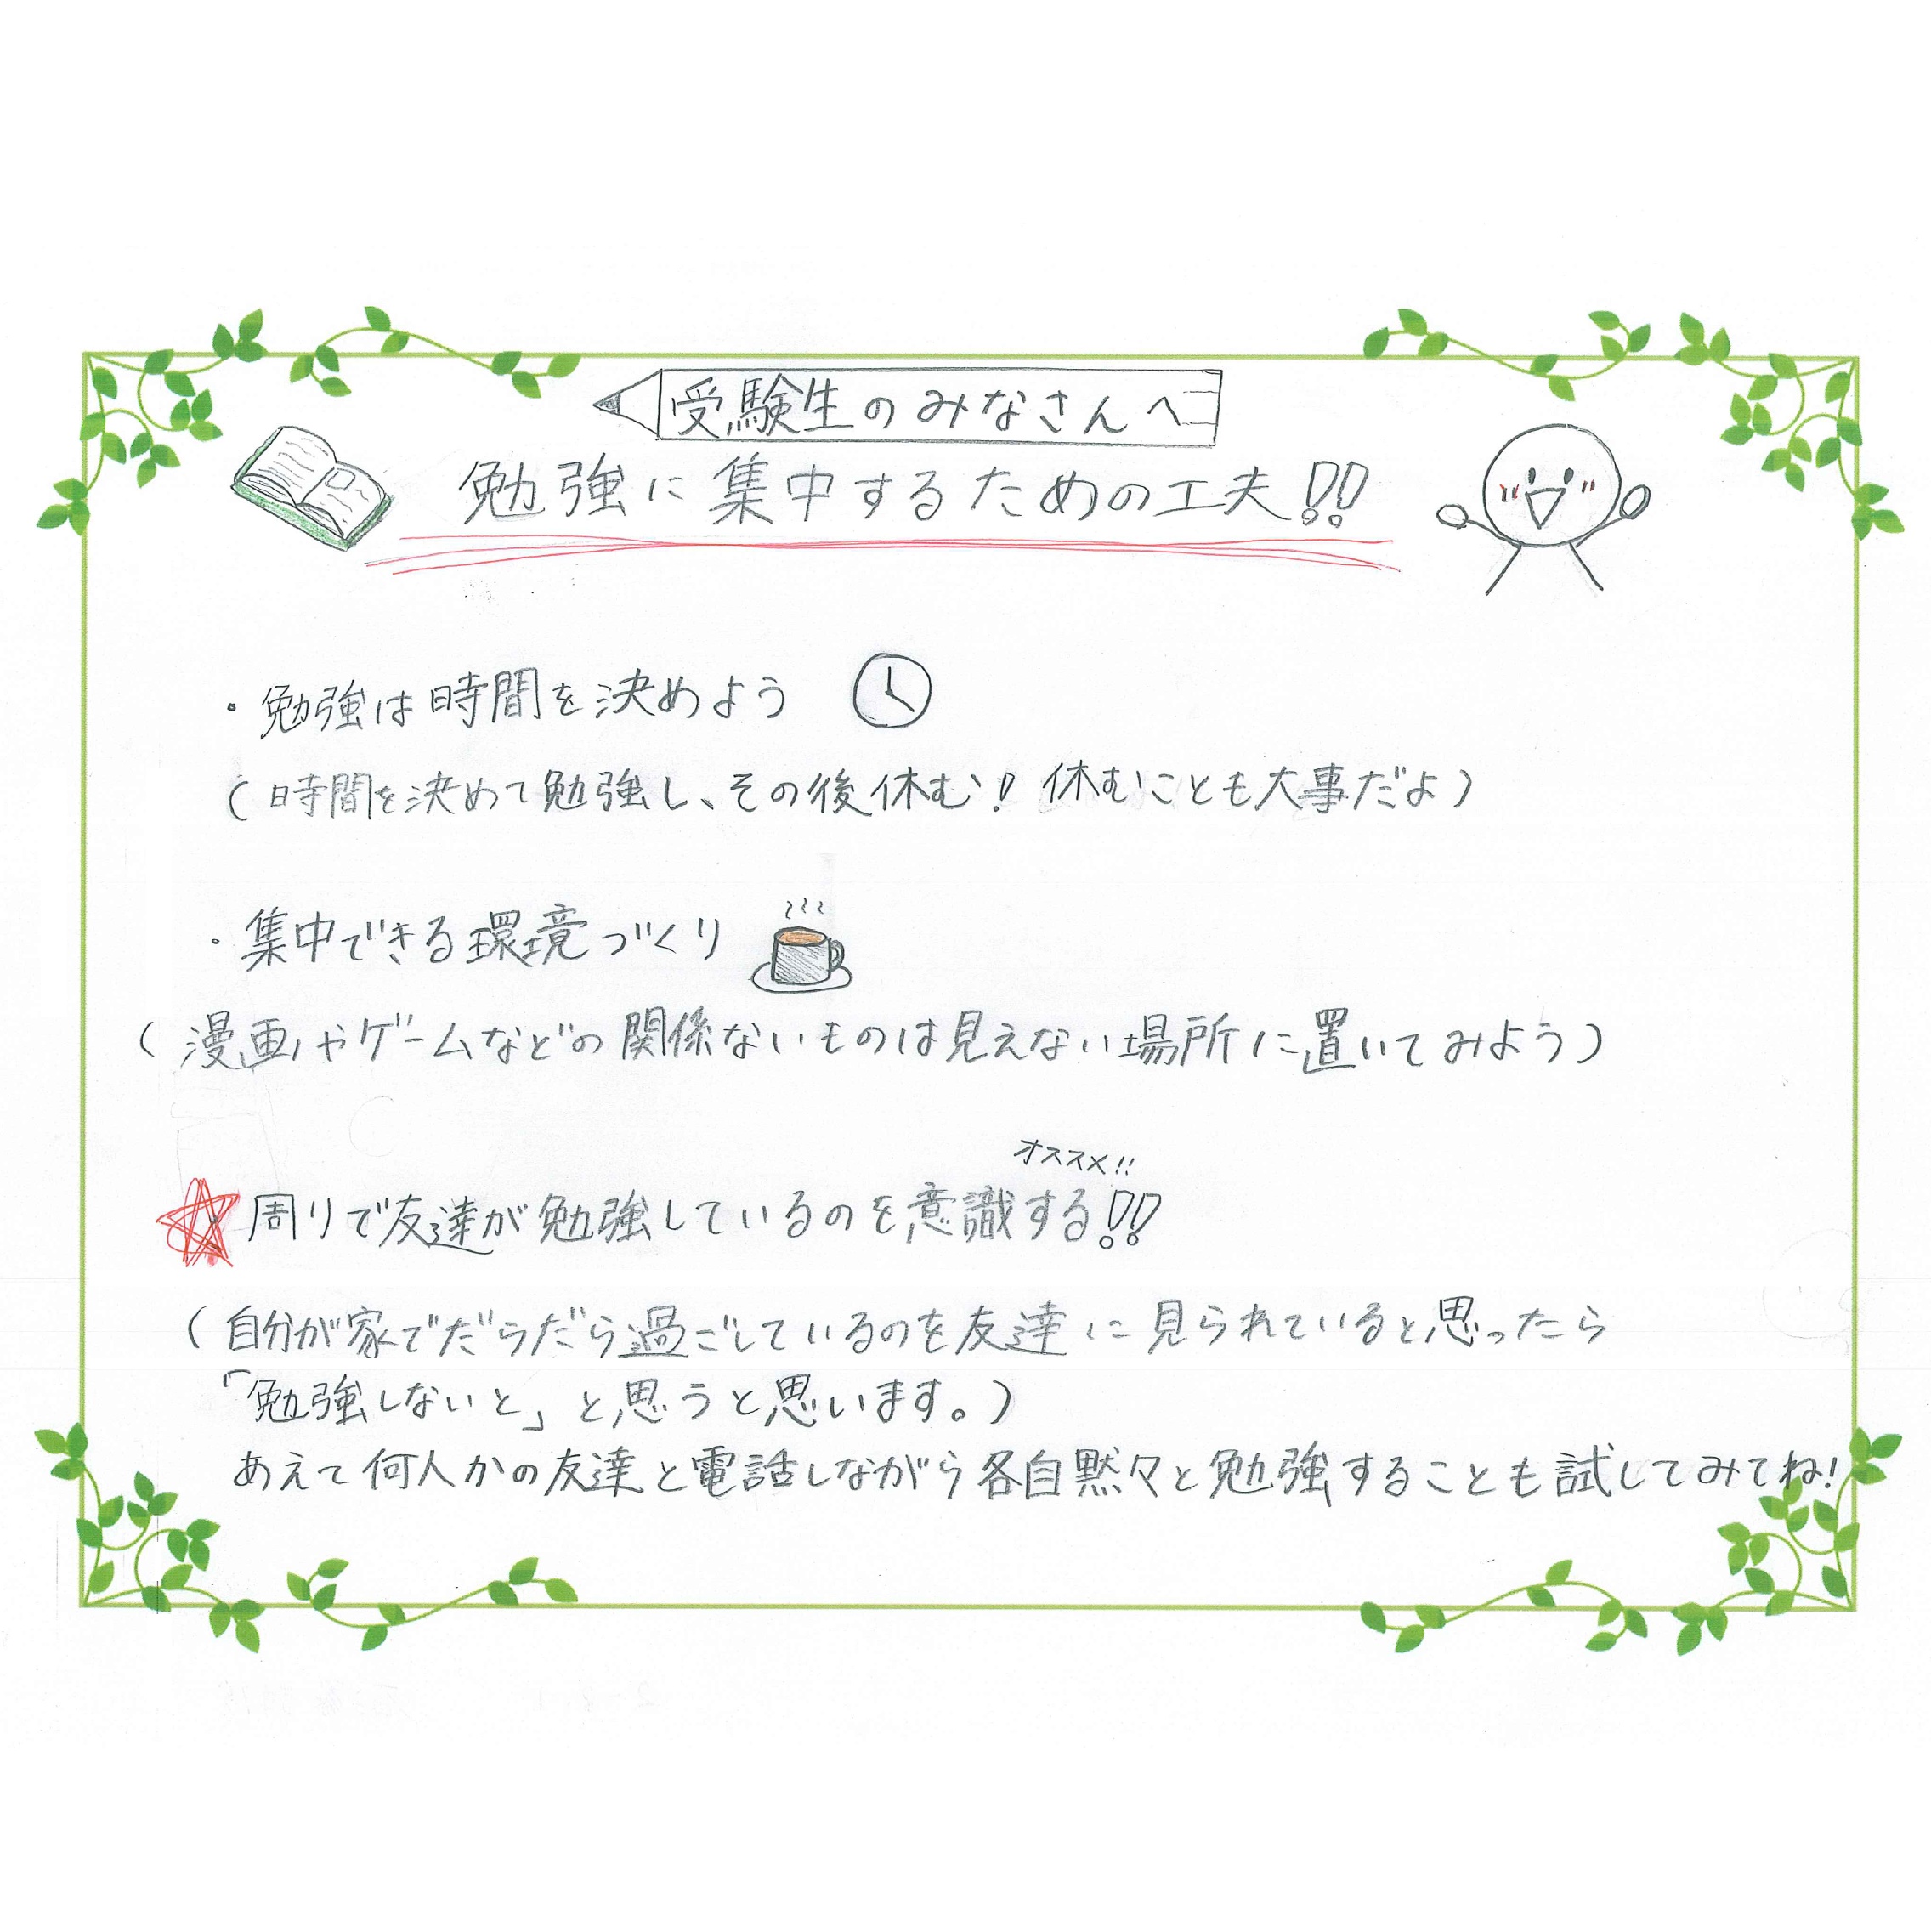 受験生のみなさんへ
勉強に集中するための工夫!!
・勉強は時間を決めよう
(時間を決めて勉強し、その後休む! 休むことも大事だよ)
・集中できる環境づくり
(漫画やゲームなどの関係ないものは見えない場所に置いてみよう)
オススメ!!
☆周りで友達が勉強しているのを意識する!!
(自分が家でだらだら過ごしているのを友達に見られていると思ったら
「勉強しないと」と思うと思います。)
あえて何人かの友達と電話しながら各自黙々と勉強することも試してみてね!